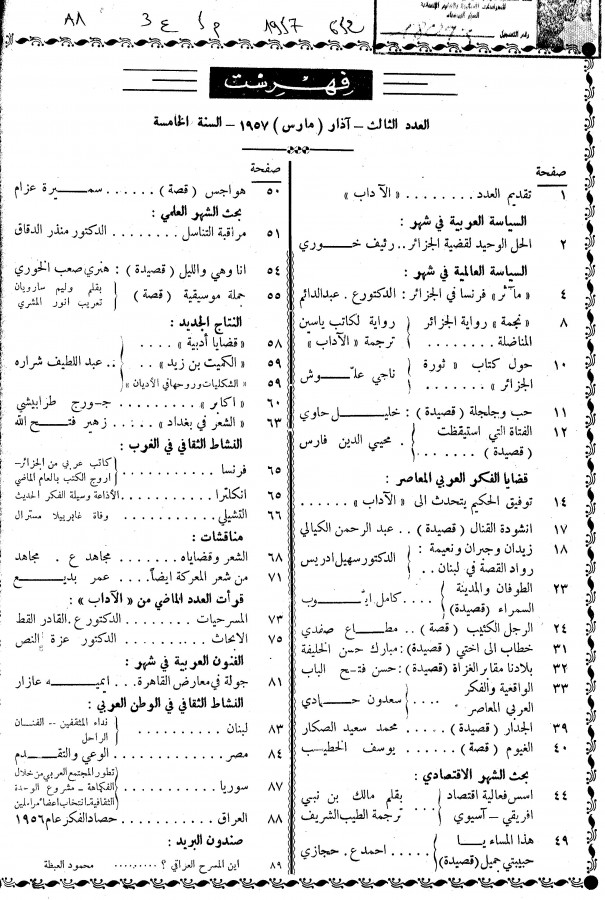 رقم التسجيل
٨٨ 3 ع م 1957
فهرست
العدد الثالث – آذار ( مارس ) ١٩٥٧ – السنة الخامسة
صفحة
١ تقديم العدد . . . . . . . . « الآداب »
السياسة العربية في شهر :
٢ الحل الوحيد لقضية الجزائر . . رئيف خــوري
السياسة العالمية في شهر :
٤ « مآثر » فرنسا في الجزائر : الدكتور ع . عبدالدائم
٨ « نجمة » رواية الجزائر المناضلة . . . . . . . رواية لكاتب ياسين ترجمة « الآداب »
١٠ حول كتاب « ثورة الجزائر » . . . . . . . ناجي علّــوش
١١ حب وجلجلة ( قصيدة ) : خليــل حاوي
١٢ الفتاة التي استيقظت ( قصيدة ) . . . . محيي الدين فارس
قضايا الفكر العربي المعاصر :
١٤ توفيق الحكيم يتحدث الى « الآداب » . . . . . .
١٧ انشودة القنال ( قصيدة ) . . عبد الرحمن الكيالي
١٨ زيدان وجبران ونعيمة : رواد القصة في لبنان . . الدكتور سهيل ادريس
٢٣ الطوفان والمدينة السمراء (قصيدة) . . . . كامل ايّــوب
٢٤ الرجل الكئيب ( قصة ) . . مطــاع صفدي
٣١ خطاب الى اختي (قصيدة) : مبارك حسن الخليفة
٣٢ بلادنا مقابر الغزاة (قصيدة) : حسن فتــح الباب
٣٣ الواقعية والفكر العربي المعاصر . . . . سعدون حــمادي
٣٩ الجدار ( قصيدة ) . . . . محمد سعيد الصكار
٤٠ الغيوم ( قصة ) . . . . . يوسف الخطيــب
بحث الشهر الاقتصادي :
٤٤ اسس فعالية اقتصاد افريقي – آسيوي بقلم مالك بن نبي ترجمة الطيب الشريف
٤٩ هذا المساء يــا حبيبتي جميل (قصيدة) . . . . . احمد ع . حجازي
صفحة
٥٠ هواجس ( قصة ) . . . . . . ســميرة عزام
بحث الشهر العلمي :
٥١ مراقبة التناسل . . . . . . . . الدكتور منذر الدقاق
٥٤ انا وهي والليل ( قصيدة ) : هنري صعب الخوري
٥٥ حملة موسيقية ( قصة ) بقلم وليم سارويان تعريب انور المشري
النتاج الجديد :
٥٨ « قضايا أدبية » . . . .
٥٩ « الكميت بن زيد » . . . . عبد اللطيف شراره
٥٩ « الشكليات وروحها في الأديان »
٦٠ « اكابر » . . . . . . . . . جــورج طرابيشي
٦٣ « الشعر في بغداد » . . . . . زهير فتــح الله
النشاط الثقافي في الغرب :
٦٥ فرنسا . . . . . . كاتب عربي من الجزائر– اروج الكتب بالعام الماضي
٦٥ انكلترا . . . . . . الأذاعة وسيلة الفكر الحديث
٦٦ التشيلي . . . . . . وفاة غابرييلا مسترال
مناقشات :
٦٨ الشعر وقضاياه . . . . . . مجاهد ع . مجاهد
٧١ من شعر المعركة ايضاً . . . . عمر بديــع
قرأت العدد الماضي من « الآداب » :
٧٣ المسرحيات . . . . . الدكتور ع . القادر القط
٧٥ الابحاث . . . . . . الدكتور عزة النص
الفنون العربية في شهر :
٨١ جولة في معارض القاهرة . . . ايميــه عازار
النشاط الثقافي في الوطن العربي :
٨٣ لبنان . . . . . . . نداء المثقفين – الفنــان الراحل
٨٤ مصر . . . . . . . . الوعي والتقــدم
٨٧ سوريا . . . . . . . تطور المجتمع العربي من خلال الفكاهة – مشروع الوحدة الثقافية – انتخاب اعضاء مراسلين
٨٨ العراق . . . . . . حصاد الفكر عام ١٩٥٦
صندوق البريد :
٨٩ اين المسرح العراقي ؟ . . . . . . . . محمود العبطة